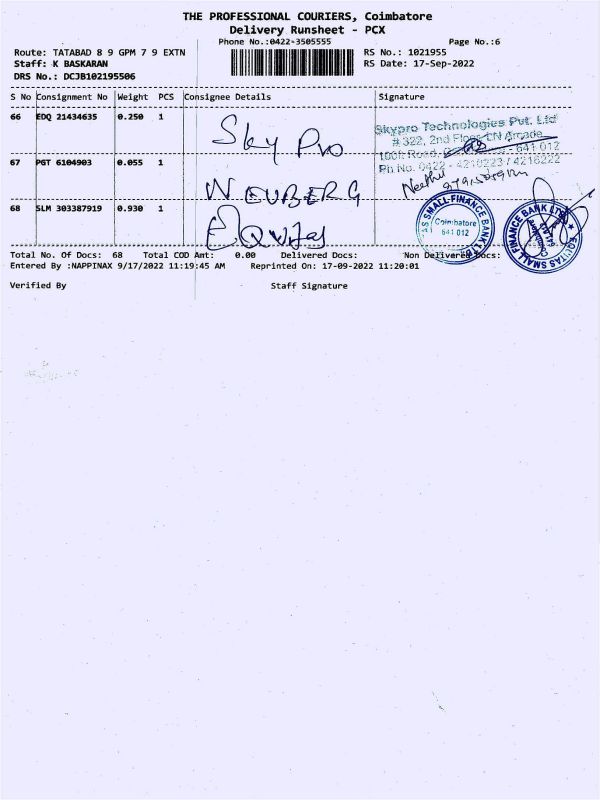 THE PROFESSIONAL COURIERS, Coimbatore
Delivery Runsheet - PCX
Phone No.:0422-3505555 Page No.:6
Route: TATABAD 8 9 GPM 7 9 EXTN RS No.: 1021955
Staff: K BASKARAN RS Date: 17-Sep-2022
DRS No.: DCJB102195506
S No Consignment No Weight PCS Consignee Details Signature
66 EDQ 21434635 0.250 1 Sky Pro
Skypro Technologies Pvt. Ltd
# 322, 2nd Floor LN Arcade
100ft Road, - 641 012
Ph No. 0422 - 4216223 / 4216222
67 PGT 6104903 0.055 1 NEUBERG Neethu
68 SLM 303387919 0.930 1 Equitas
SMALL FINANCE BANK LTD
Coimbatore
641 012
EQUITAS SMALL FINANCE BANK LTD
Total No. Of Docs: 68 Total COD Amt: 0.00 Delivered Docs: Non Delivered Docs:
Entered By :NAPPINAX 9/17/2022 11:19:45 AM Reprinted On: 17-09-2022 11:20:01
Verified By Staff Signature